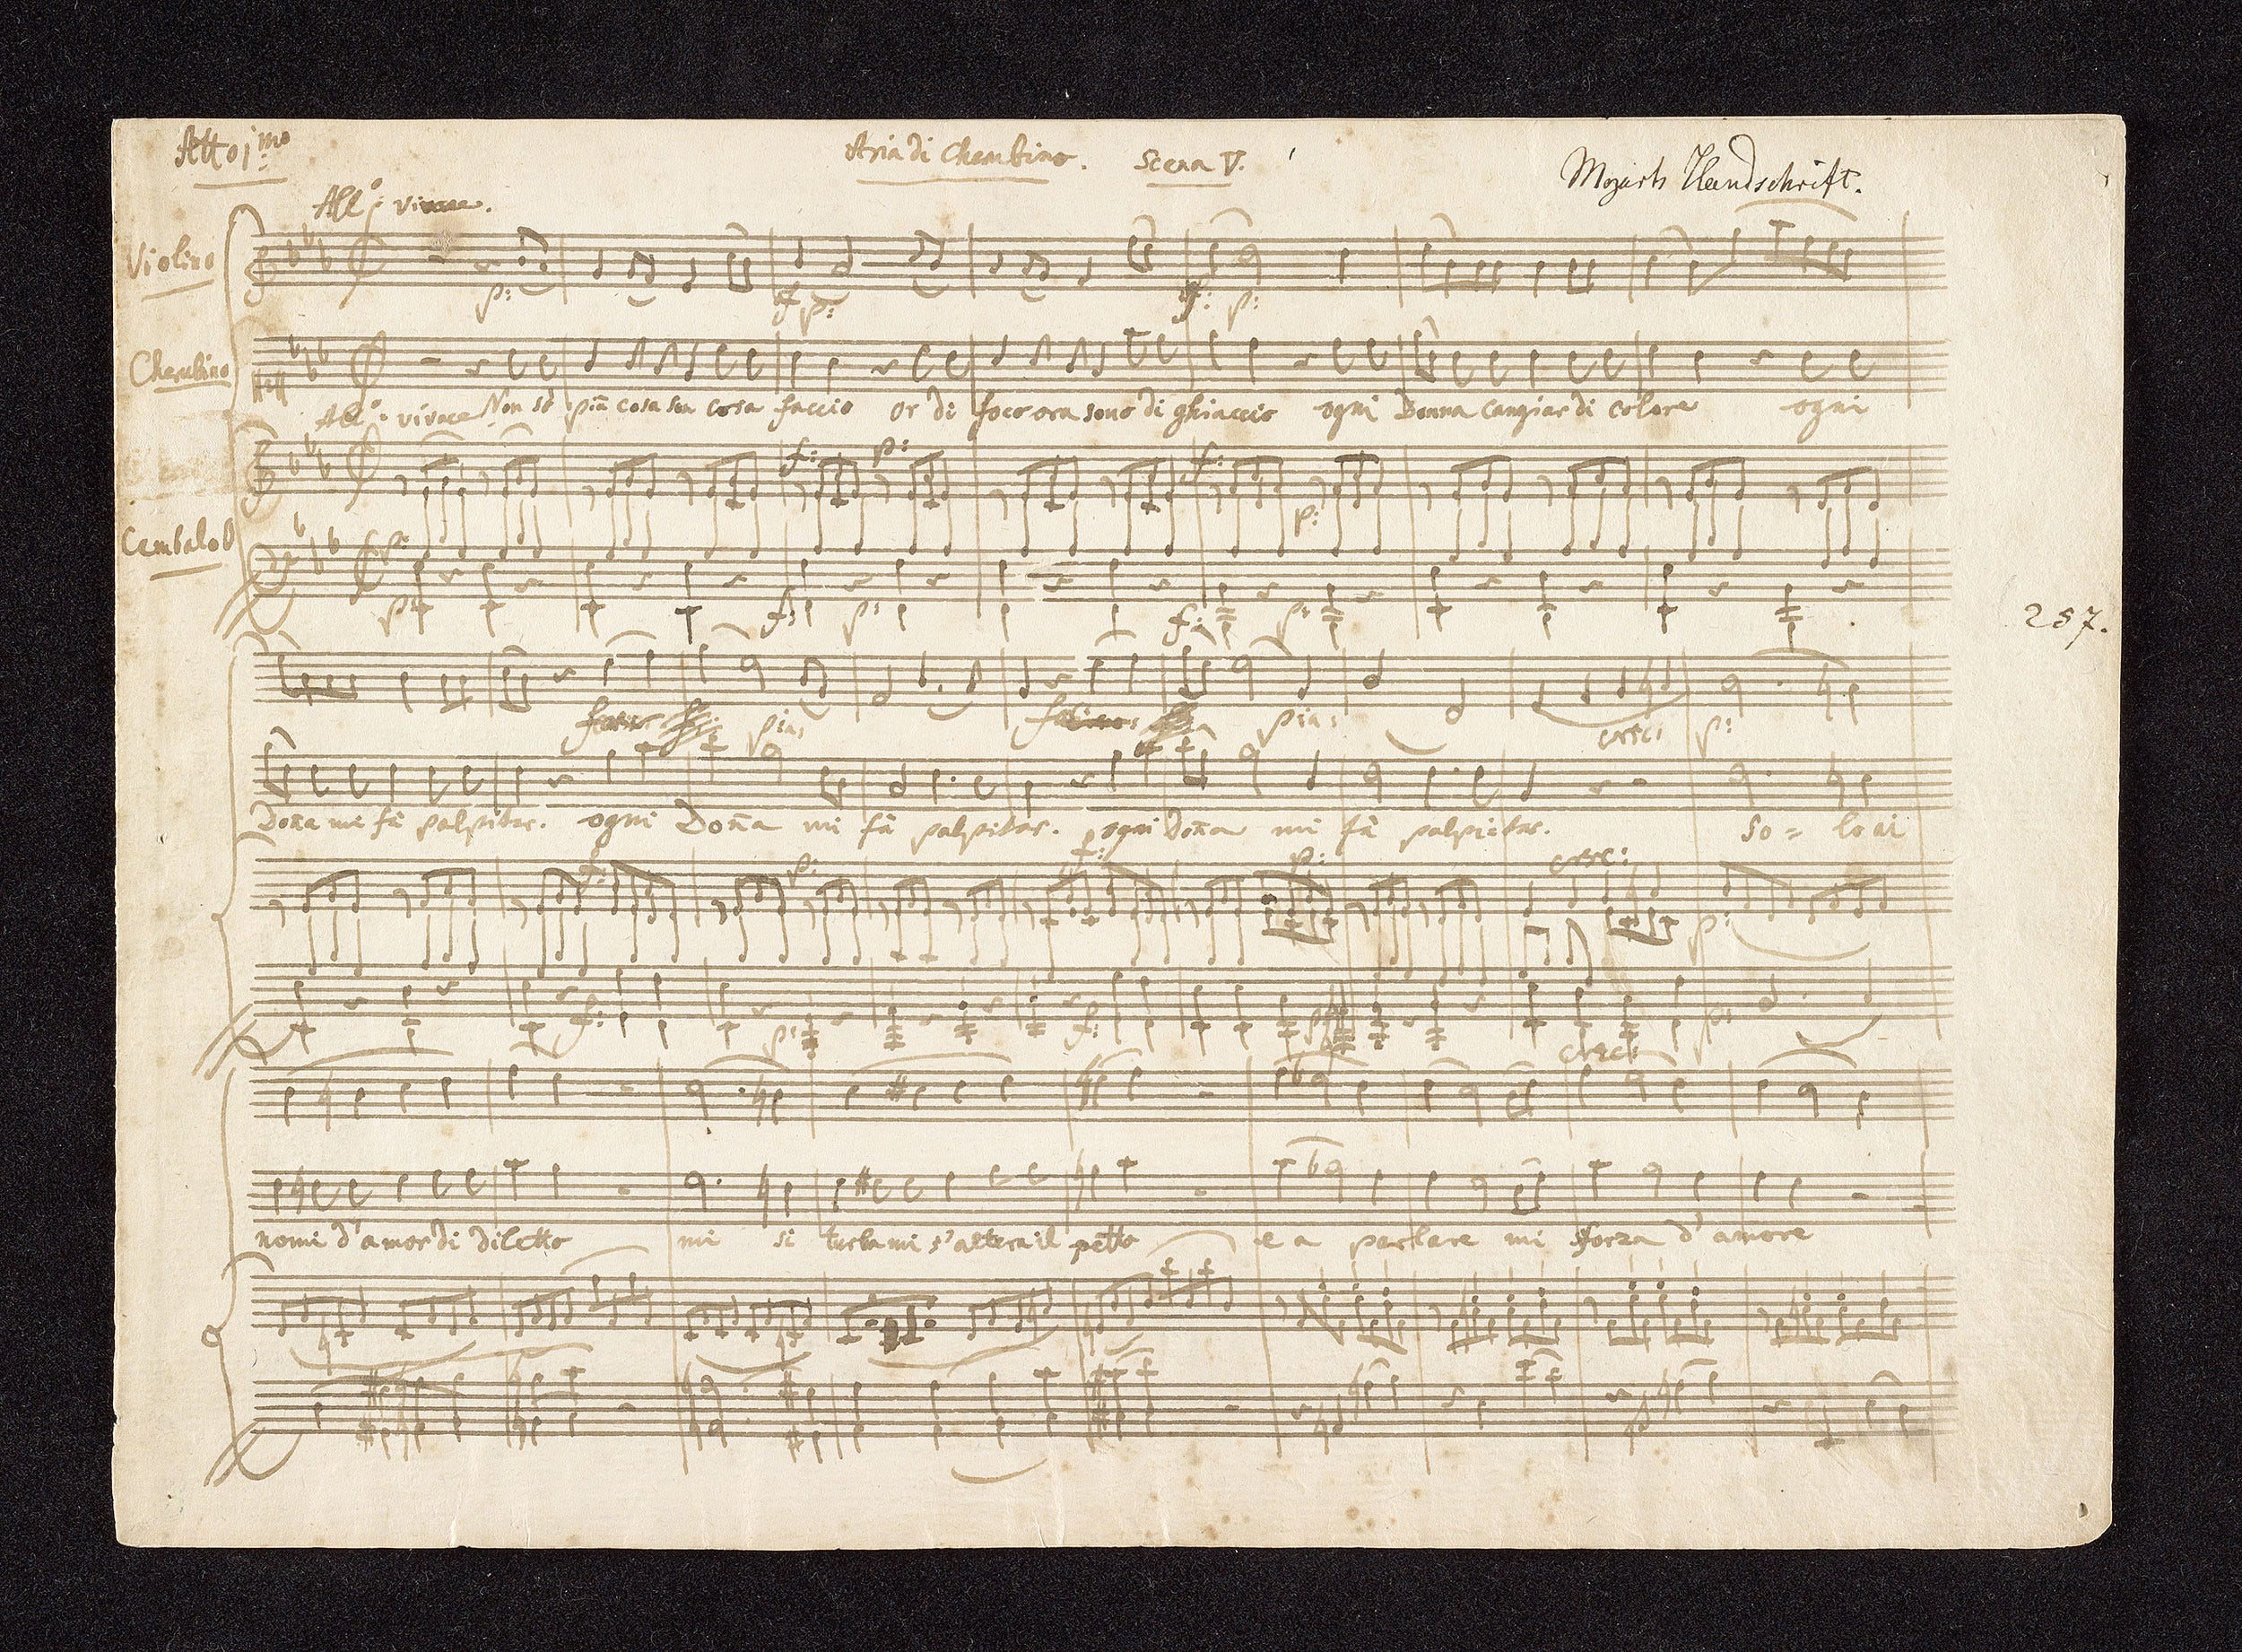 Atto 1mo Aria di Cherubino. Scena V. Mozarts Handschrift.
All:o vivace.
Violino
p: f p: f: p:
Cherubino
All:o vivace Non sò più cosa son cosa faccio or di foco ora sono di ghiaccio ogni Donna cangiar di colore ogni
f: p: f: p:
Cembalo
p:
p: f: p: f: p:
257.
pia: pia: cresc: p:
Doña mi fà palpitar. ogni Doña mi fà palpitar. ogni Doña mi fà palpitar. so= lo ai
f: p: f: p: cresc: p:
f: p: f: p: cresc: p:
nomi d'amor di diletto mi si turba mi s'altera il petto e a parlare mi sforza d'amore